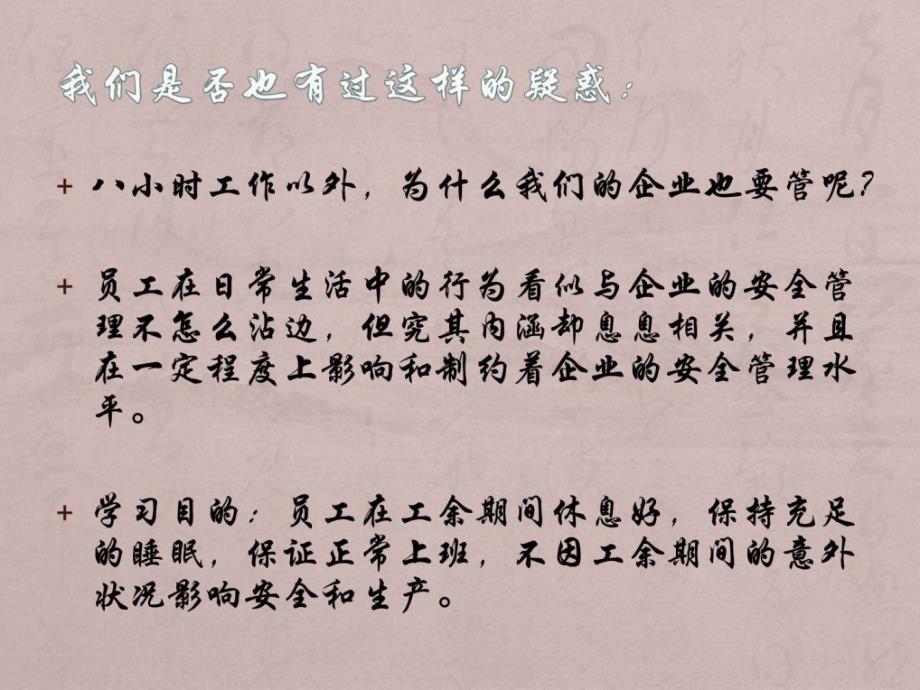 我们是否也有过这样的疑惑：
+ 八小时工作以外，为什么我们的企业也要管呢？
+ 员工在日常生活中的行为看似与企业的安全管
理不怎么沾边，但究其内涵却息息相关，并且
在一定程度上影响和制约着企业的安全管理水
平。
+ 学习目的：员工在工余期间休息好，保持充足
的睡眠，保证正常上班，不因工余期间的意外
状况影响安全和生产。